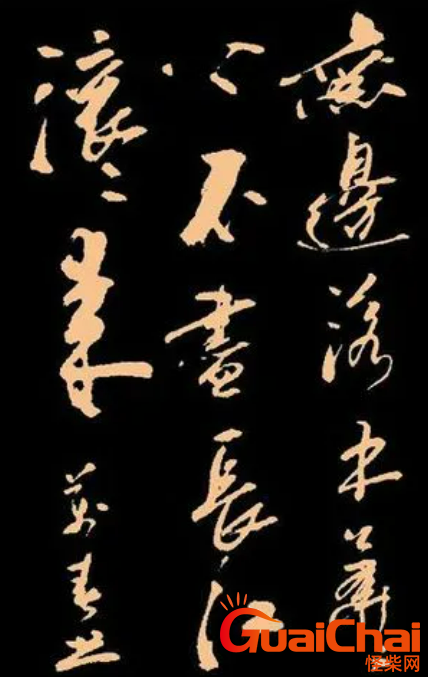 無邊落木蕭〻
下不盡長江
滾〻來
GuaiChai
怪柴网